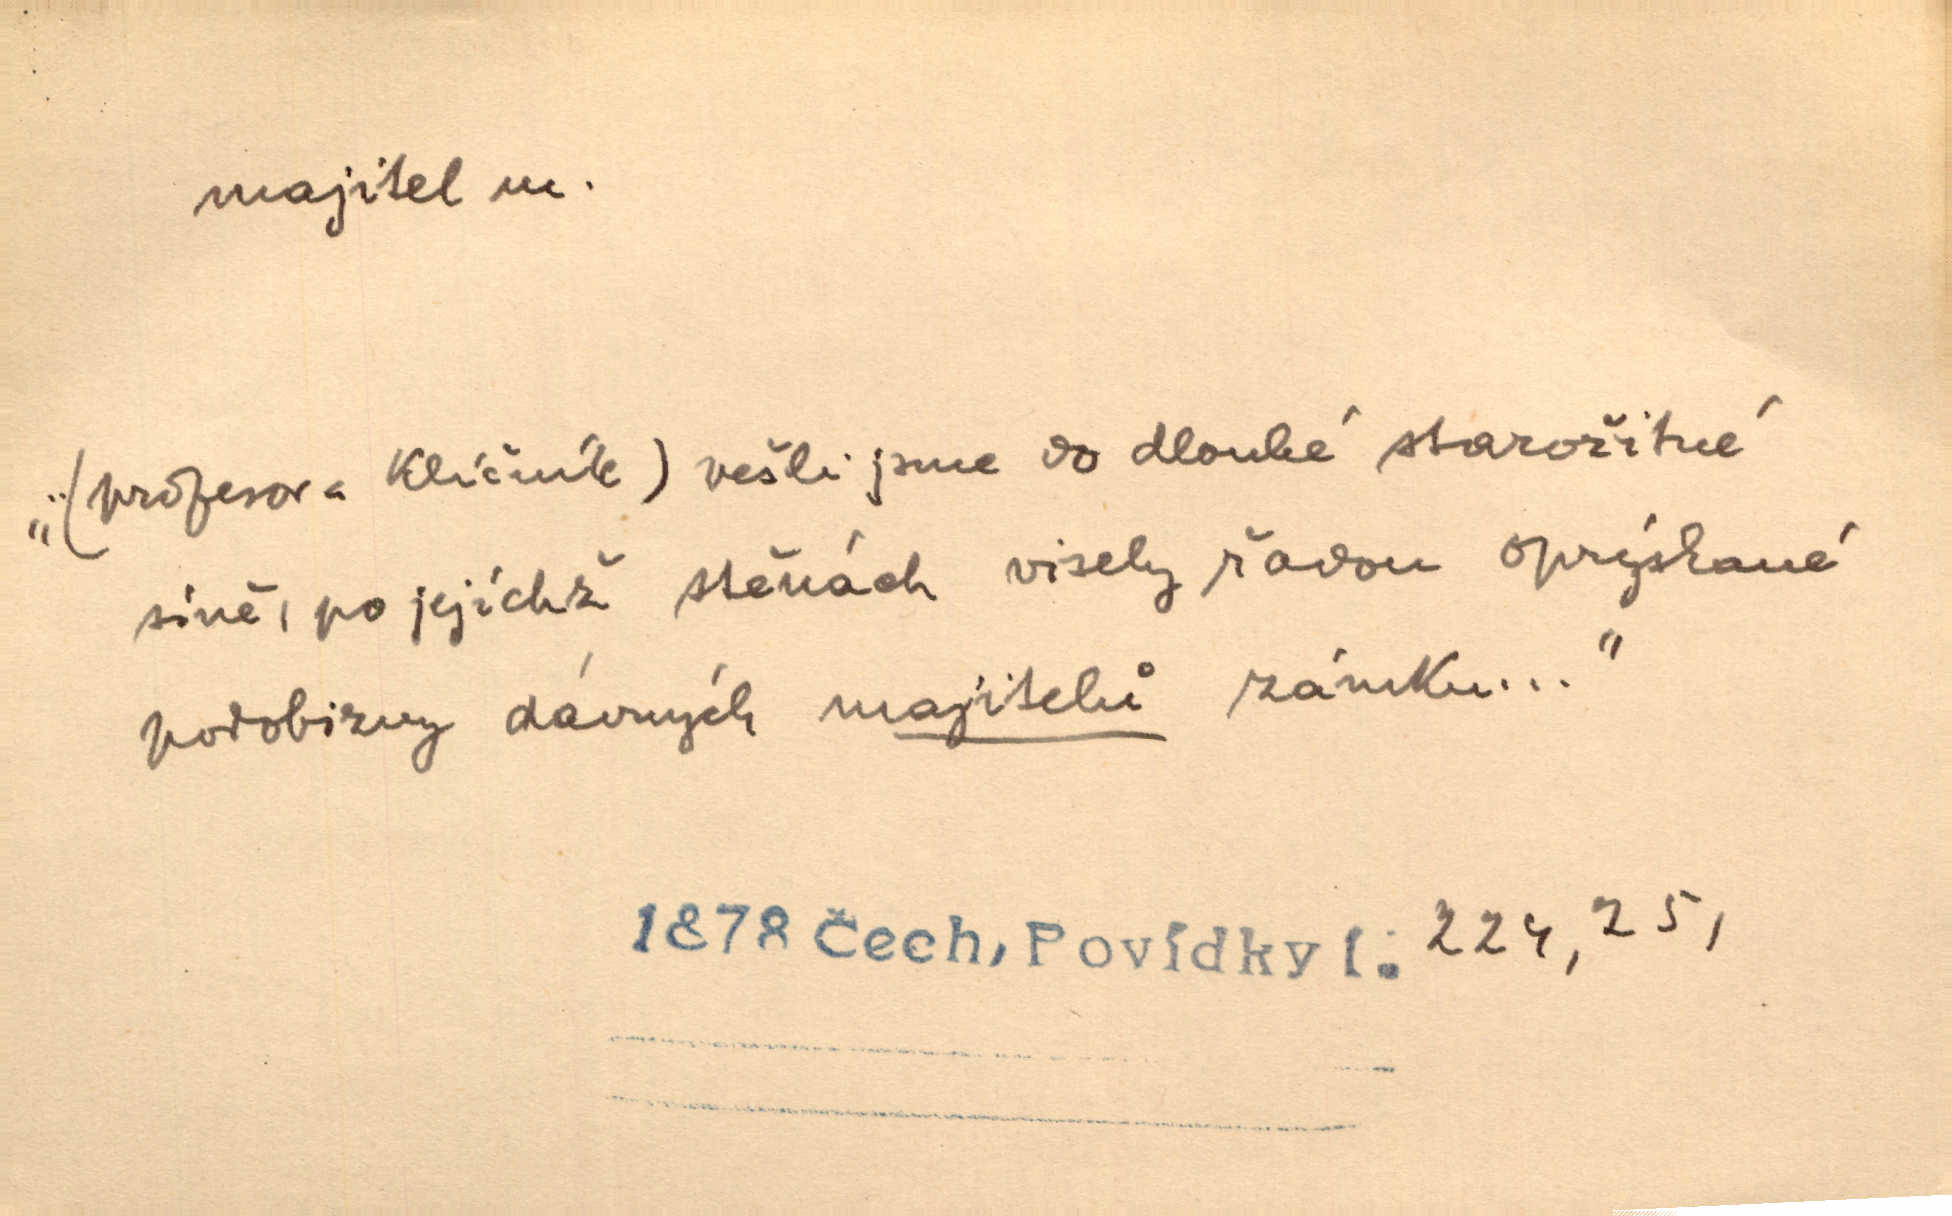 majitel m.
„(profesor a Klíčník) vešli jsme do dlouhé starožitné
síně, po jejíchž stěnách visely řadou oprýskané
podobizny dávných majitelů zámku..."
1878 Čech, Povídky I: 224, 25,